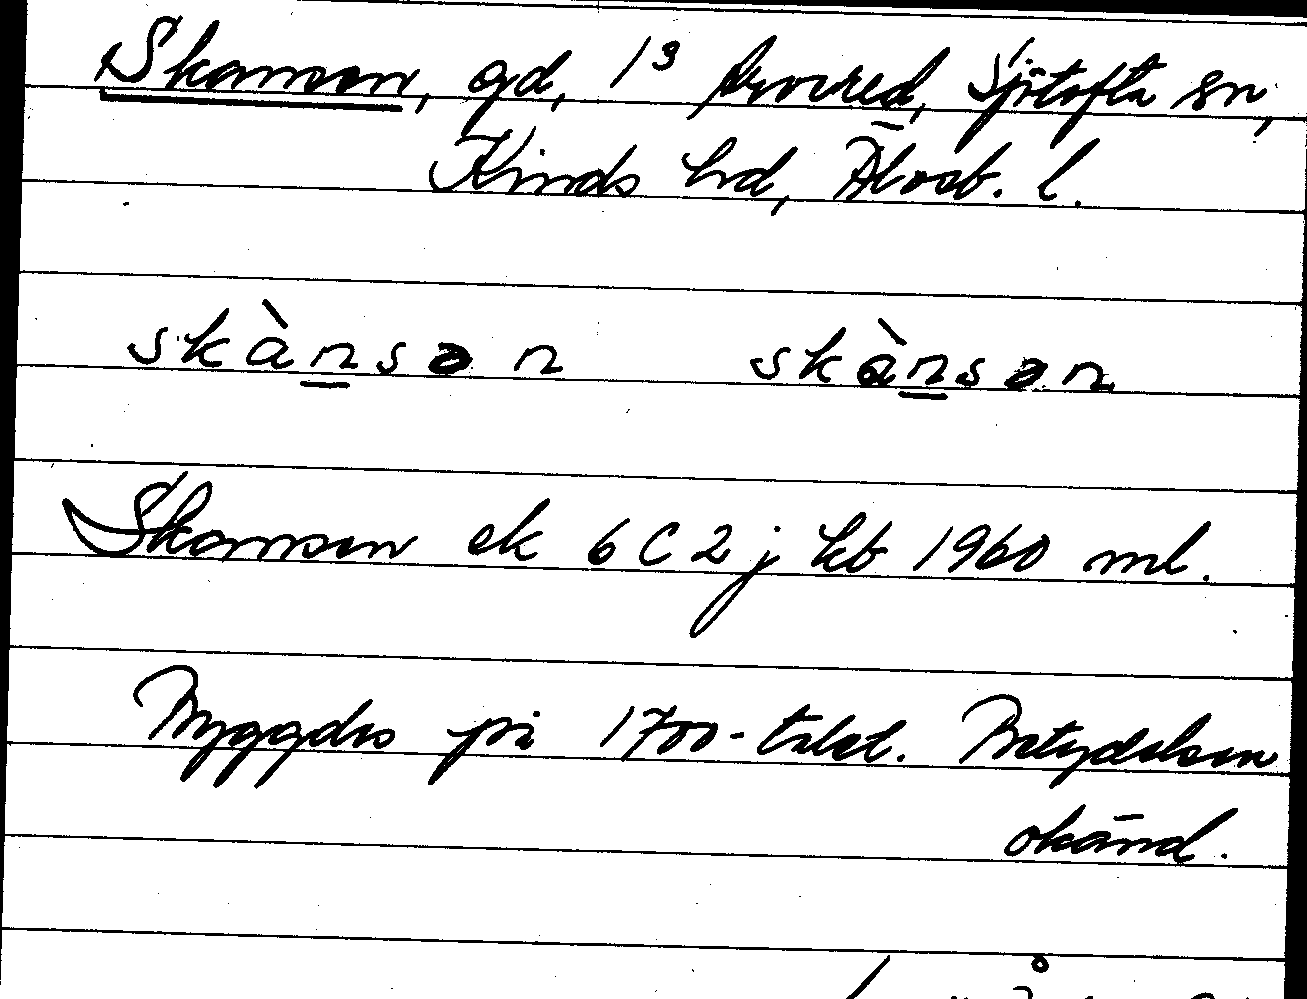 Skansen, gd, 1³ Arvered, Sjötofta sn,
Kinds hd, Älvsb. l.
skànsən skànsən
Skansen ek 6 C 2 j kb 1960 ml.
Byggdes på 1700-talet. Betydelsen
okänd.